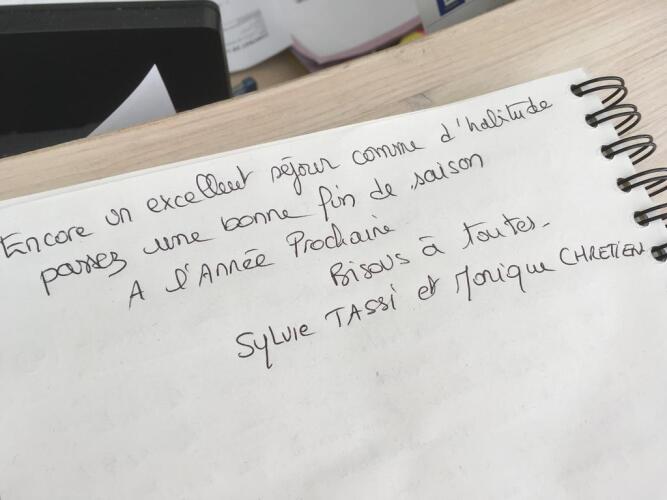 Encore un excellent séjour comme d'habitude
passez une bonne fin de saison
A l'Année Prochaine
Bisous à toutes.
Sylvie TASSI et Monique CHRETIEN